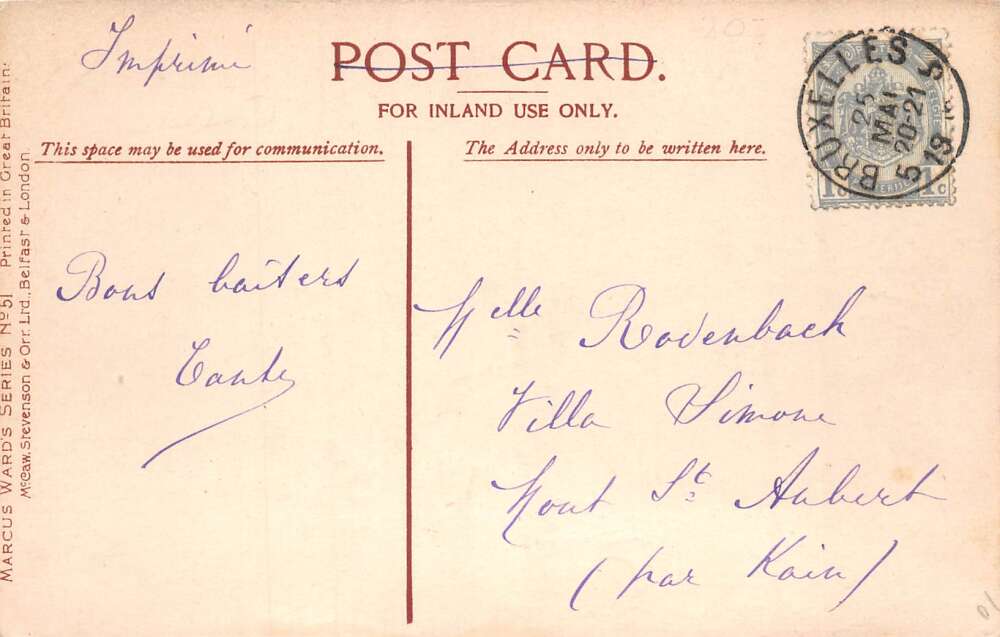 Imprimé
POST CARD.
FOR INLAND USE ONLY.
This space may be used for communication.
The Address only to be written here.
MARCUS WARD'S SERIES Nº 51 Printed in Great Britain.
McCaw, Stevenson & Orr, Ltd., Belfast & London.
BRUXELLES 5
25
MAI
20-21
19
1c 1c
Bons baisers
Tante
Melle Rodenbach
Villa Simone
Mont St Aubert
(par Kain)